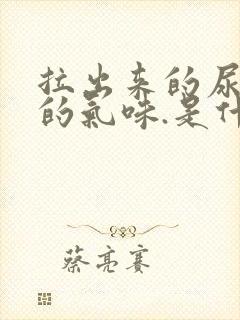 拉出来的尿
的氣味.是什
蔡亮賽